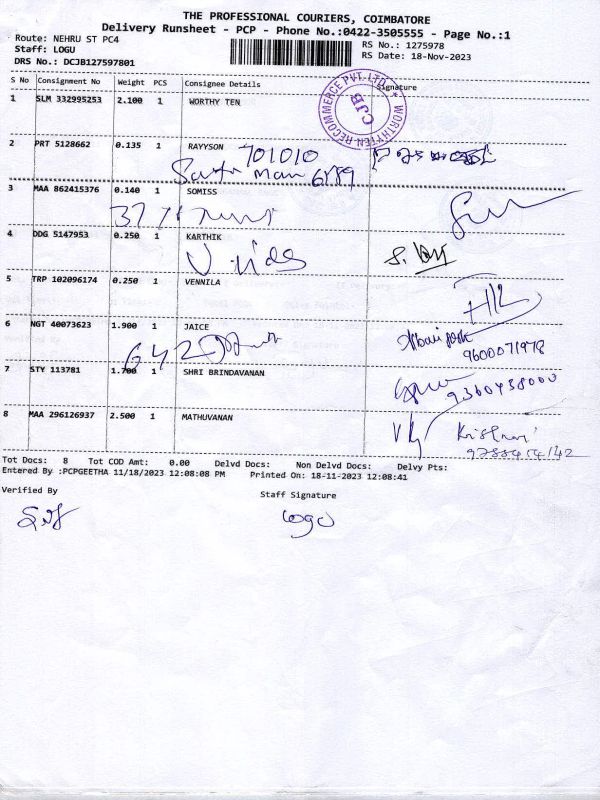 THE PROFESSIONAL COURIERS, COIMBATORE
Delivery Runsheet - PCP - Phone No.:0422-3505555 - Page No.:1
Route: NEHRU ST PC4
Staff: LOGU
RS No.: 1275978
DRS No.: DCJB127597801
RS Date: 18-Nov-2023
S No Consignment No Weight PCS Consignee Details Signature
1 SLM 332995253 2.100 1 WORTHY TEN
WORTHYTEN RECOMMERCE PVT. LTD.
CJB
2 PRT 5128662 0.135 1 RAYYSON
701010
3 MAA 862415376 0.140 1 SOMISS
4 DDG 5147953 0.250 1 KARTHIK
5 TRP 102096174 0.250 1 VENNILA
6 NGT 40073623 1.900 1 JAICE
9600071978
7 STY 113781 1.700 1 SHRI BRINDAVANAN
8 MAA 296126937 2.500 1 MATHUVANAN
Tot Docs: 8 Tot COD Amt: 0.00 Delvd Docs: Non Delvd Docs: Delvy Pts:
Entered By :PCPGEETHA 11/18/2023 12:08:08 PM Printed On: 18-11-2023 12:08:41
Verified By
Staff Signature
Logu